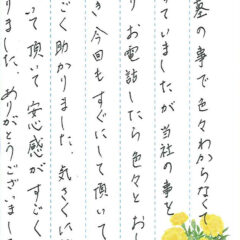 墓の事で色々わからなくて
っていましたが当社の事を
りお電話したら色々とお
き今回もすぐにして頂いて
ごく助かりました。気さくに
いて頂いて安心感がすごく
りました。ありがとうございまし